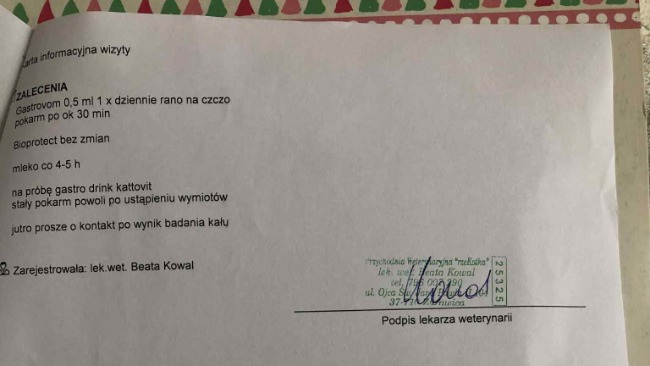 Karta informacyjna wizyty
ZALECENIA
Gastrovom 0,5 ml 1 x dziennie rano na czczo
pokarm po ok 30 min
Bioprotect bez zmian
mleko co 4-5 h
na próbę gastro drink kattovit
stały pokarm powoli po ustąpieniu wymiotów
jutro prosze o kontakt po wynik badania kału
Zarejestrowała: lek.wet. Beata Kowal
Przychodnia Weterynaryjna "rzeKotka"
lek. wet. Beata Kowal
tel.
ul. Ojca Św. Jana
37-
25325
Podpis lekarza weterynarii